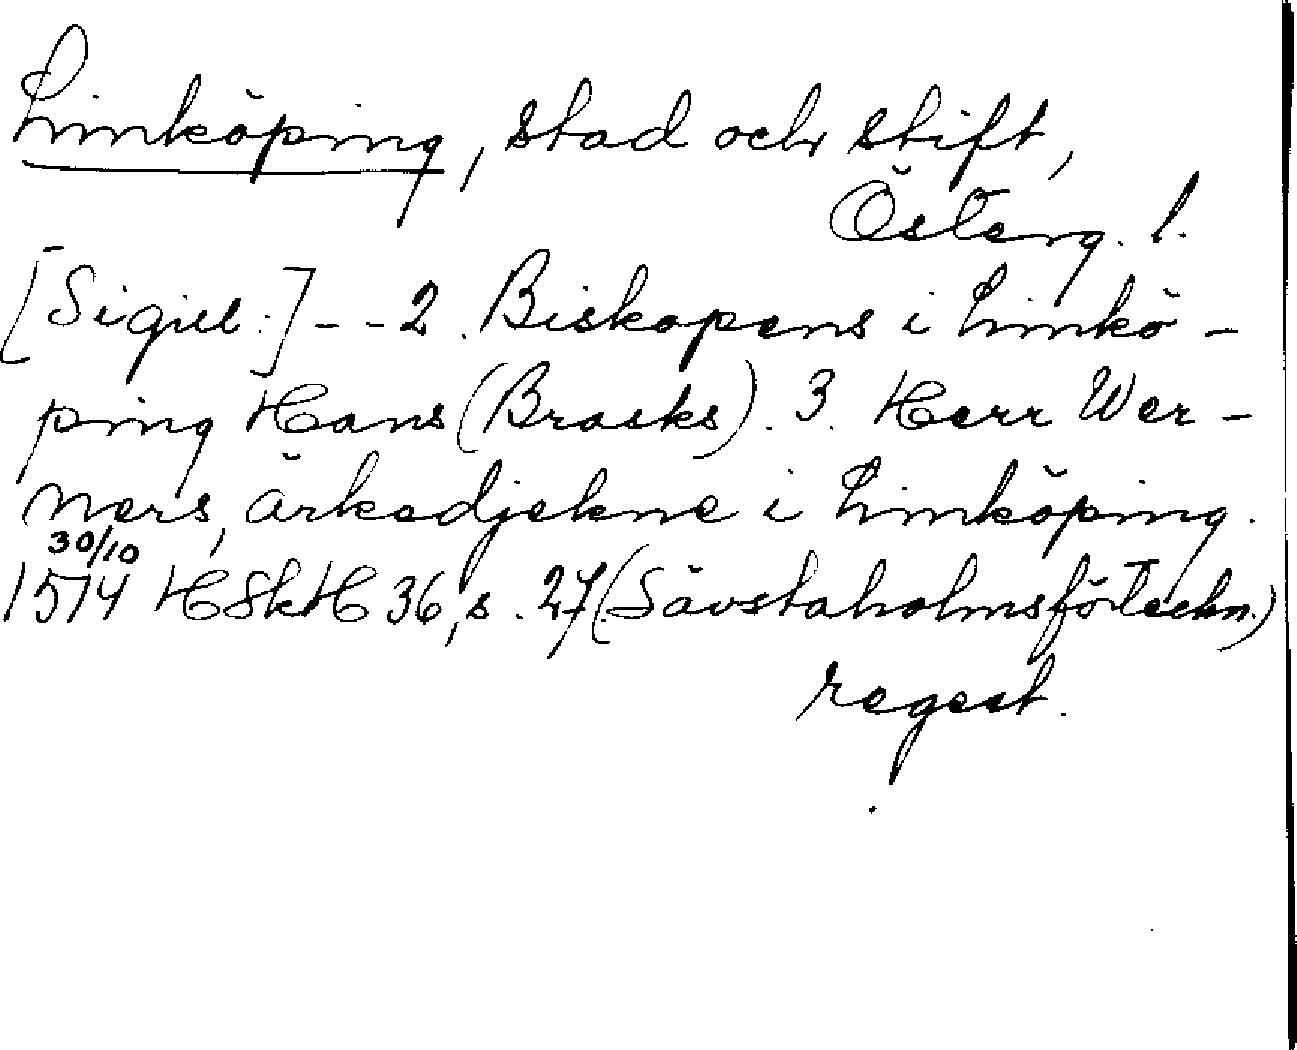 Linköping, stad och stift,
Österg. l.
[Sigill:] - - 2. Biskopens i Linkö-
ping Hans (Brasks). 3. Herr Wer-
ners, ärkedjekne i Linköping.
30/10
1514 HSkH 36, s. 27 (Sävstaholmsförteckn.)
regest.